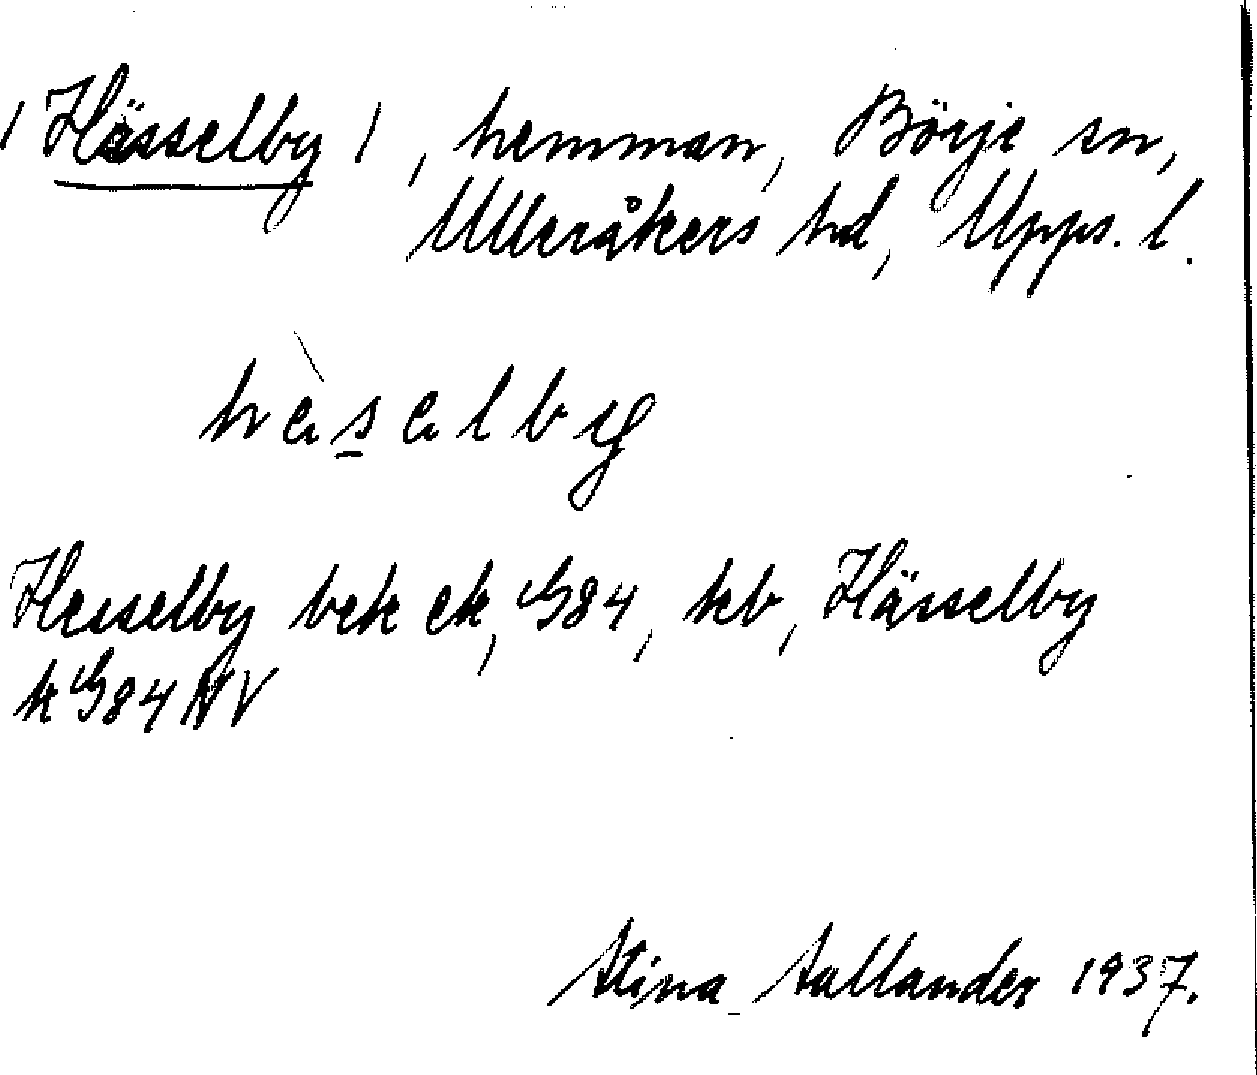 / Hässelby /, hemman, Börje sn,
Ulleråkers hd, Upps. l.
hèselby
Hesselby bek ek, G84, kb, Hässelby
k G84 NV
Stina Sallander 1937.